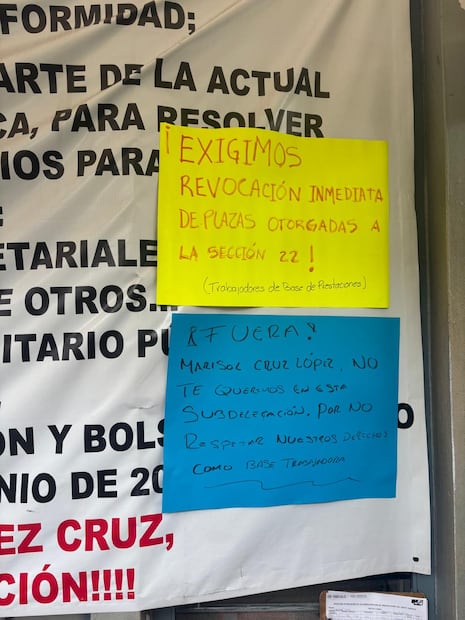 FORMIDAD;
ARTE DE LA ACTUAL
CA, PARA RESOLVER
IOS PARA
:
ETARIALE
E OTROS...
ITARIO PÚ
ÓN Y BOLS O
NIO DE 20
EZ CRUZ,
CIÓN!!!!
¡EXIGIMOS
REVOCACIÓN INMEDIATA
DE PLAZAS OTORGADAS A
LA SECCIÓN 22!
(Trabajadores de Base de Prestaciones)
¡FUERA!
MARISOL CRUZ LÓPEZ, NO
TE QUEREMOS EN ESTA
SUBDELEGACIÓN, POR NO
RESPETAR NUESTROS DERECHOS
COMO BASE TRABAJADORA